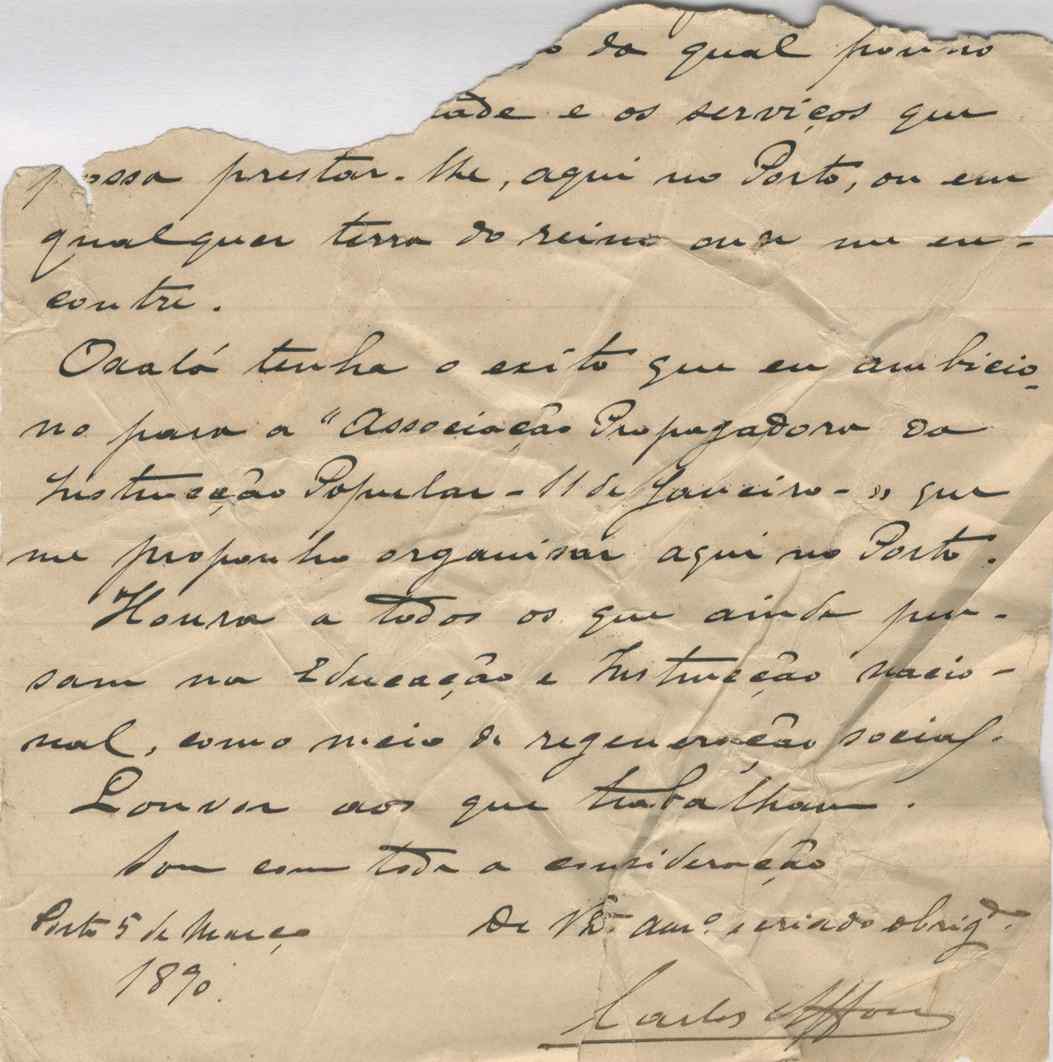 da qual ponho
e os serviços que
possa prestar-lhe, aqui no Porto, ou em
qualquer terra do reino onde me en-
contre.
Oxalá tenha o exito que eu ambicio-
no para a "Associação Propagadora da
Instrucção Popular - 11 de Janeiro - ", que
me proponho organisar aqui no Porto.
Honra a todos os que ainda pen-
sam na Educação e Instrucção nacio-
nal, como meio de regeneração social.
Louvor aos que trabalham.
Sou com toda a consideração
De V. Ex.ª am.º e criado obrig.do
Porto 5 de Março
1890.
Carlos Affonso